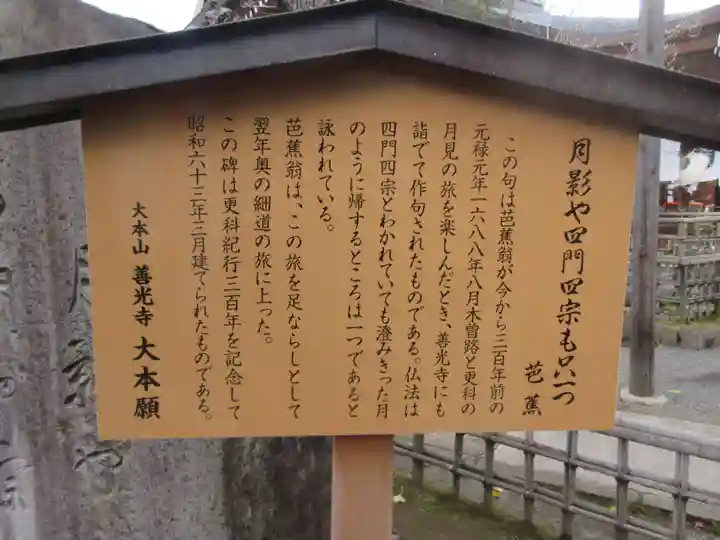 月影や四門四宗も只一つ
芭蕉
この句は芭蕉翁が今から三百年前の
元禄元年一六八八年八月木曽路と更科の
月見の旅を楽しんだとき、善光寺にも
詣でて作句されたものである。仏法は
四門四宗とわかれていても澄みきった月
のように帰するところは一つであると
詠われている。
芭蕉翁は、この旅を足ならしとして
翌年奥の細道の旅に上った。
この碑は更科紀行三百年を記念して
昭和六十三年三月建てられたものである。
大本山 善光寺 大本願
月影や